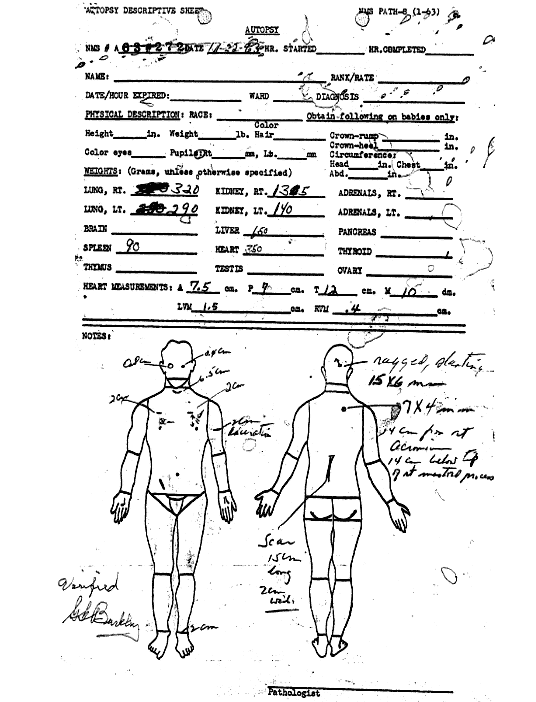 AUTOPSY DESCRIPTIVE SHEET NMS PATH-8 (1-63)
AUTOPSY
NMS # A 63 # 272 DATE 11-22-63 HR. STARTED HR. COMPLETED
NAME: RANK/RATE
DATE/HOUR EXPIRED: WARD DIAGNOSIS
PHYSICAL DESCRIPTION: RACE: Obtain following on babies only:
Color
Height in. Weight lb. Hair Crown-rump in.
Crown-heel in.
Color eyes Pupils: Rt mm, Lt. mm Circumference:
Head in. Chest in.
Abd. in.
WEIGHTS: (Grams, unless otherwise specified)
LUNG, RT. 320 KIDNEY, RT. ADRENALS, RT.
LUNG, LT. 290 KIDNEY, LT. 140 ADRENALS, LT.
BRAIN LIVER PANCREAS
SPLEEN 90 HEART 350 THYROID
THYMUS TESTIS OVARY
HEART MEASUREMENTS: A 7.5 cm. P cm. T 12 cm. M 10 cm.
LVM 1.5 cm. RVM .4 cm.
NOTES:
ragged, slanting
15 X 6 mm
6.5 cm
2cm
2cm
7 X 4 mm
14 cm from rt
acromion
14 cm below tip
of rt mastoid process
Scar
15cm
long
2cm
Verified
2cm
Pathologist